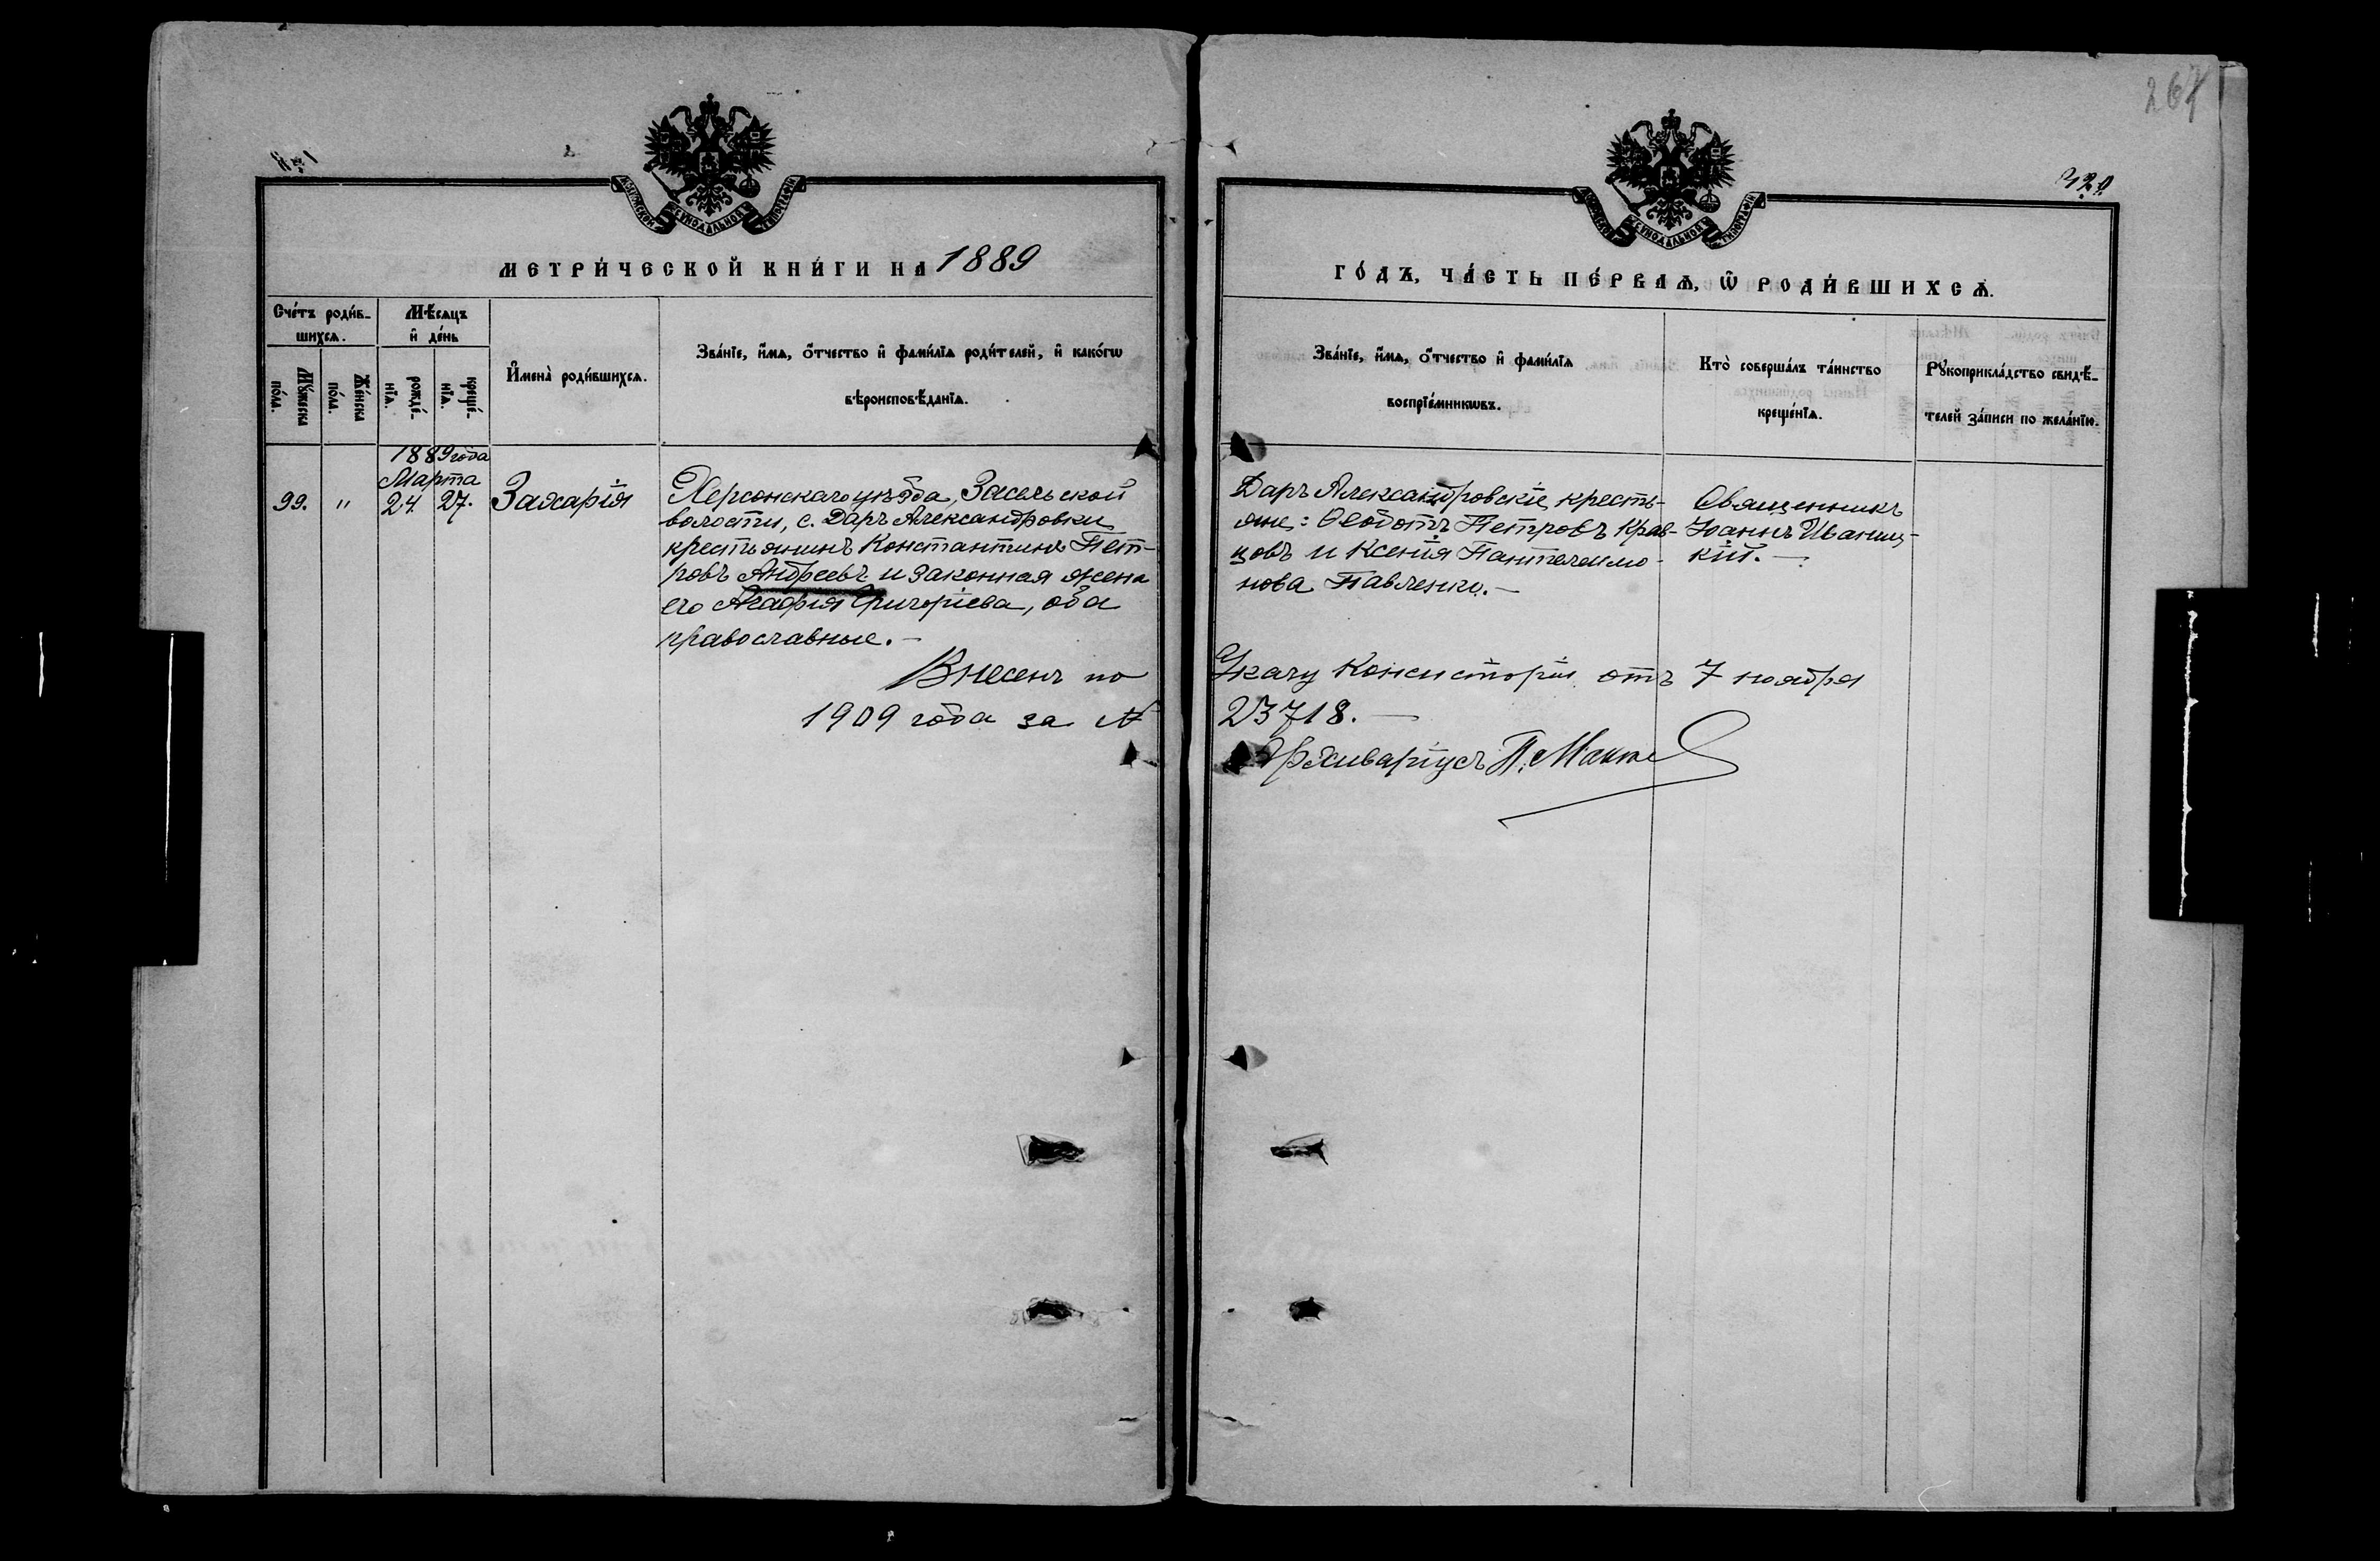 267
№ 1
МОСКОВСКОЙ СѴНОДАЛЬНОЙ ТѴПОГРАФІИ
МОСКОВСКОЙ СѴНОДАЛЬНОЙ ТѴПОГРАФІИ
МЕТРИ́ЧЕСКОЙ КНИ́ГИ НА 1889
ГО́ДЪ, ЧА́СТЬ ПЕ́РВАѦ, Ѿ РОДИ́ВШИХСѦ.
Сче́тъ роди́в-
шихсѧ.
Мꙋжеска
по́ла.
Же́нска
по́ла.
Мѣ́сѧцъ
и҆ де́нь
рожде́-
нїѧ.
креще́-
нїѧ.
И҆мена̀ роди́вшихсѧ.
Зва́нїе, и҆́мѧ, о҆́тчество и҆ фами́лїѧ роди́телей, и҆ како́гѡ
вѣроисповѣ́данїѧ.
Зва́нїе, и҆́мѧ, о҆́тчество и҆ фами́лїѧ
воспрїе́мникѡвъ.
Кто̀ соверша́лъ та́инство
креще́нїѧ.
Рꙋкоприкла́дство свидѣ́-
телей за́писи по жела́нїю.
1889 года
Марта
99. " 24. 27. Захарія
Херсонскаго уѣзда, Засельской
волости, с. Даръ Александровки
крестьянинъ Константинъ Пет-
ровъ Андреевъ и законная жена
его Агафія Григоріева, оба
православные.-
Даръ Александровскіе кресть-
яне: Ѳеодотъ Петровъ Крав-
цовъ и Ксенія Пантелеимо-
нова Павленко.-
Священникъ
Іоаннъ Иваниц-
кій.-
Внесенъ по Указу Консисторіи отъ 7 ноября
1909 года за № 23718.-
Архиваріусъ П.